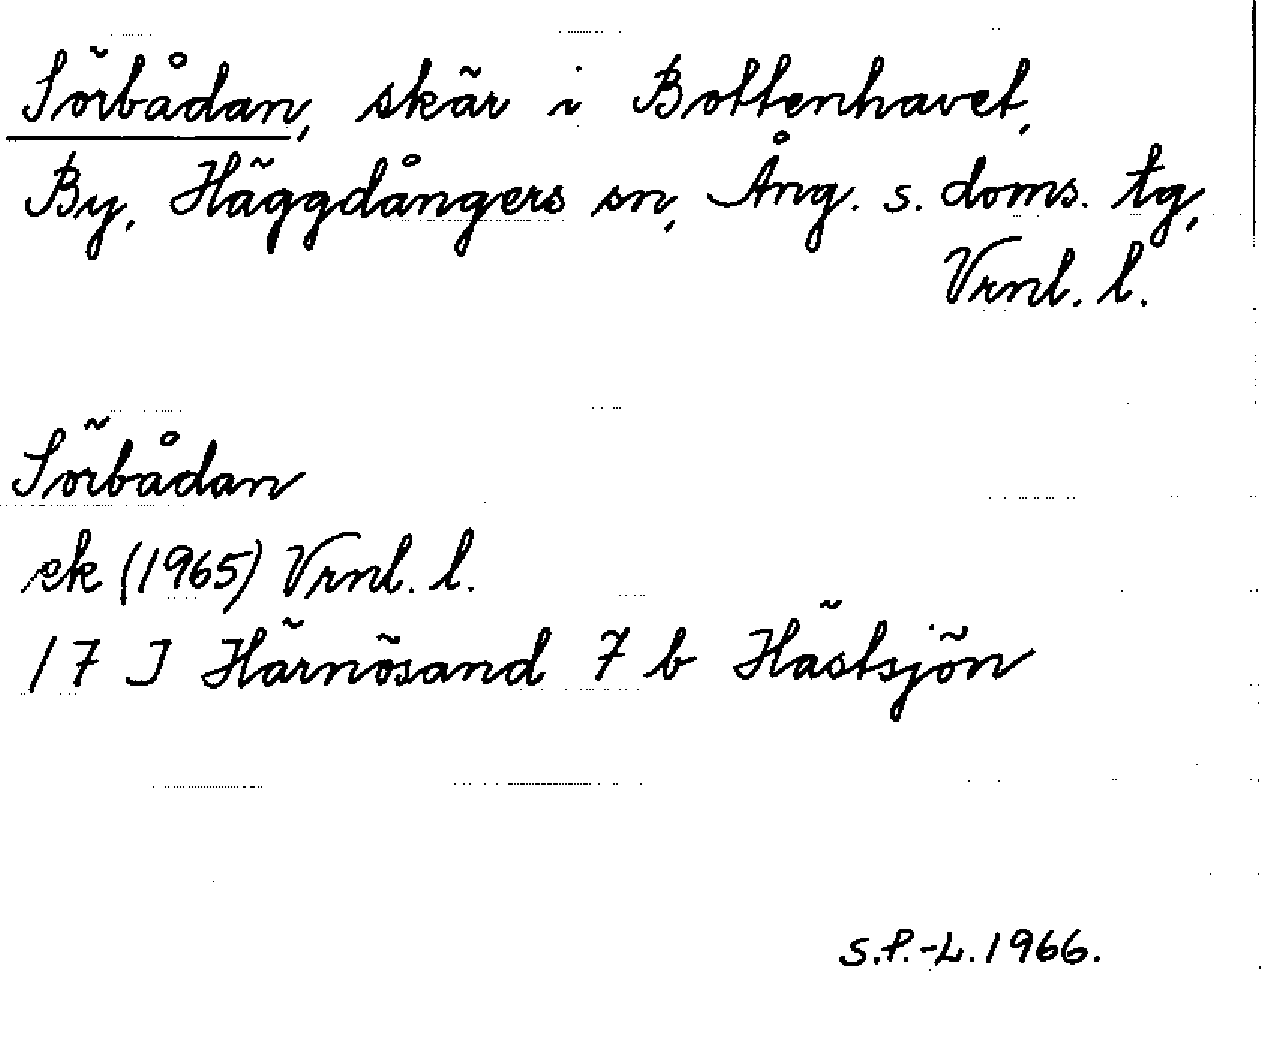 Sörbådan, skär i Bottenhavet,
By, Häggdångers sn, Ång. s. doms. tg,
Vrnl. l.
Sörbådan
ek (1965) Vrnl. l.
17 I Härnösand 7 b Hästsjön
S.P.-L. 1966.